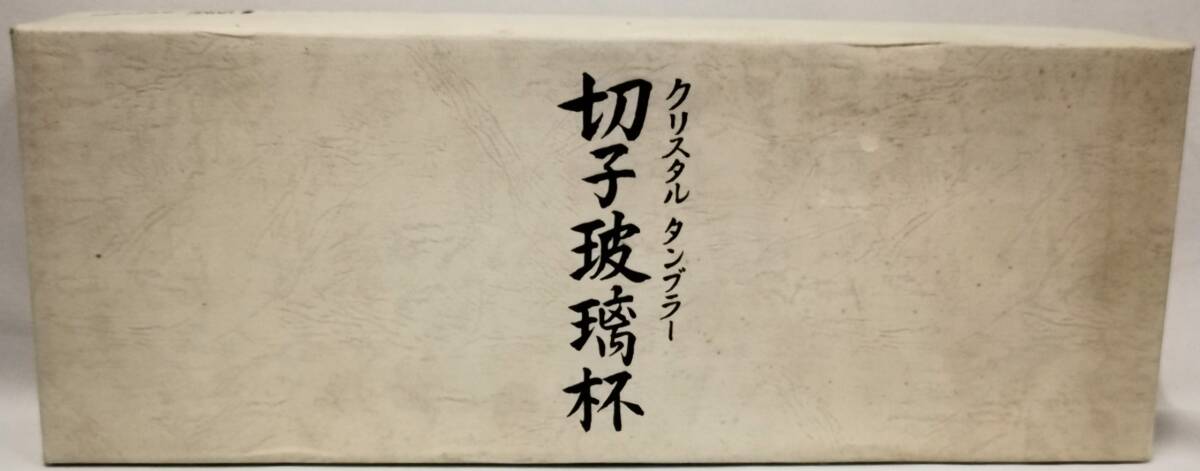 クリスタル タンブラー
切子玻璃杯